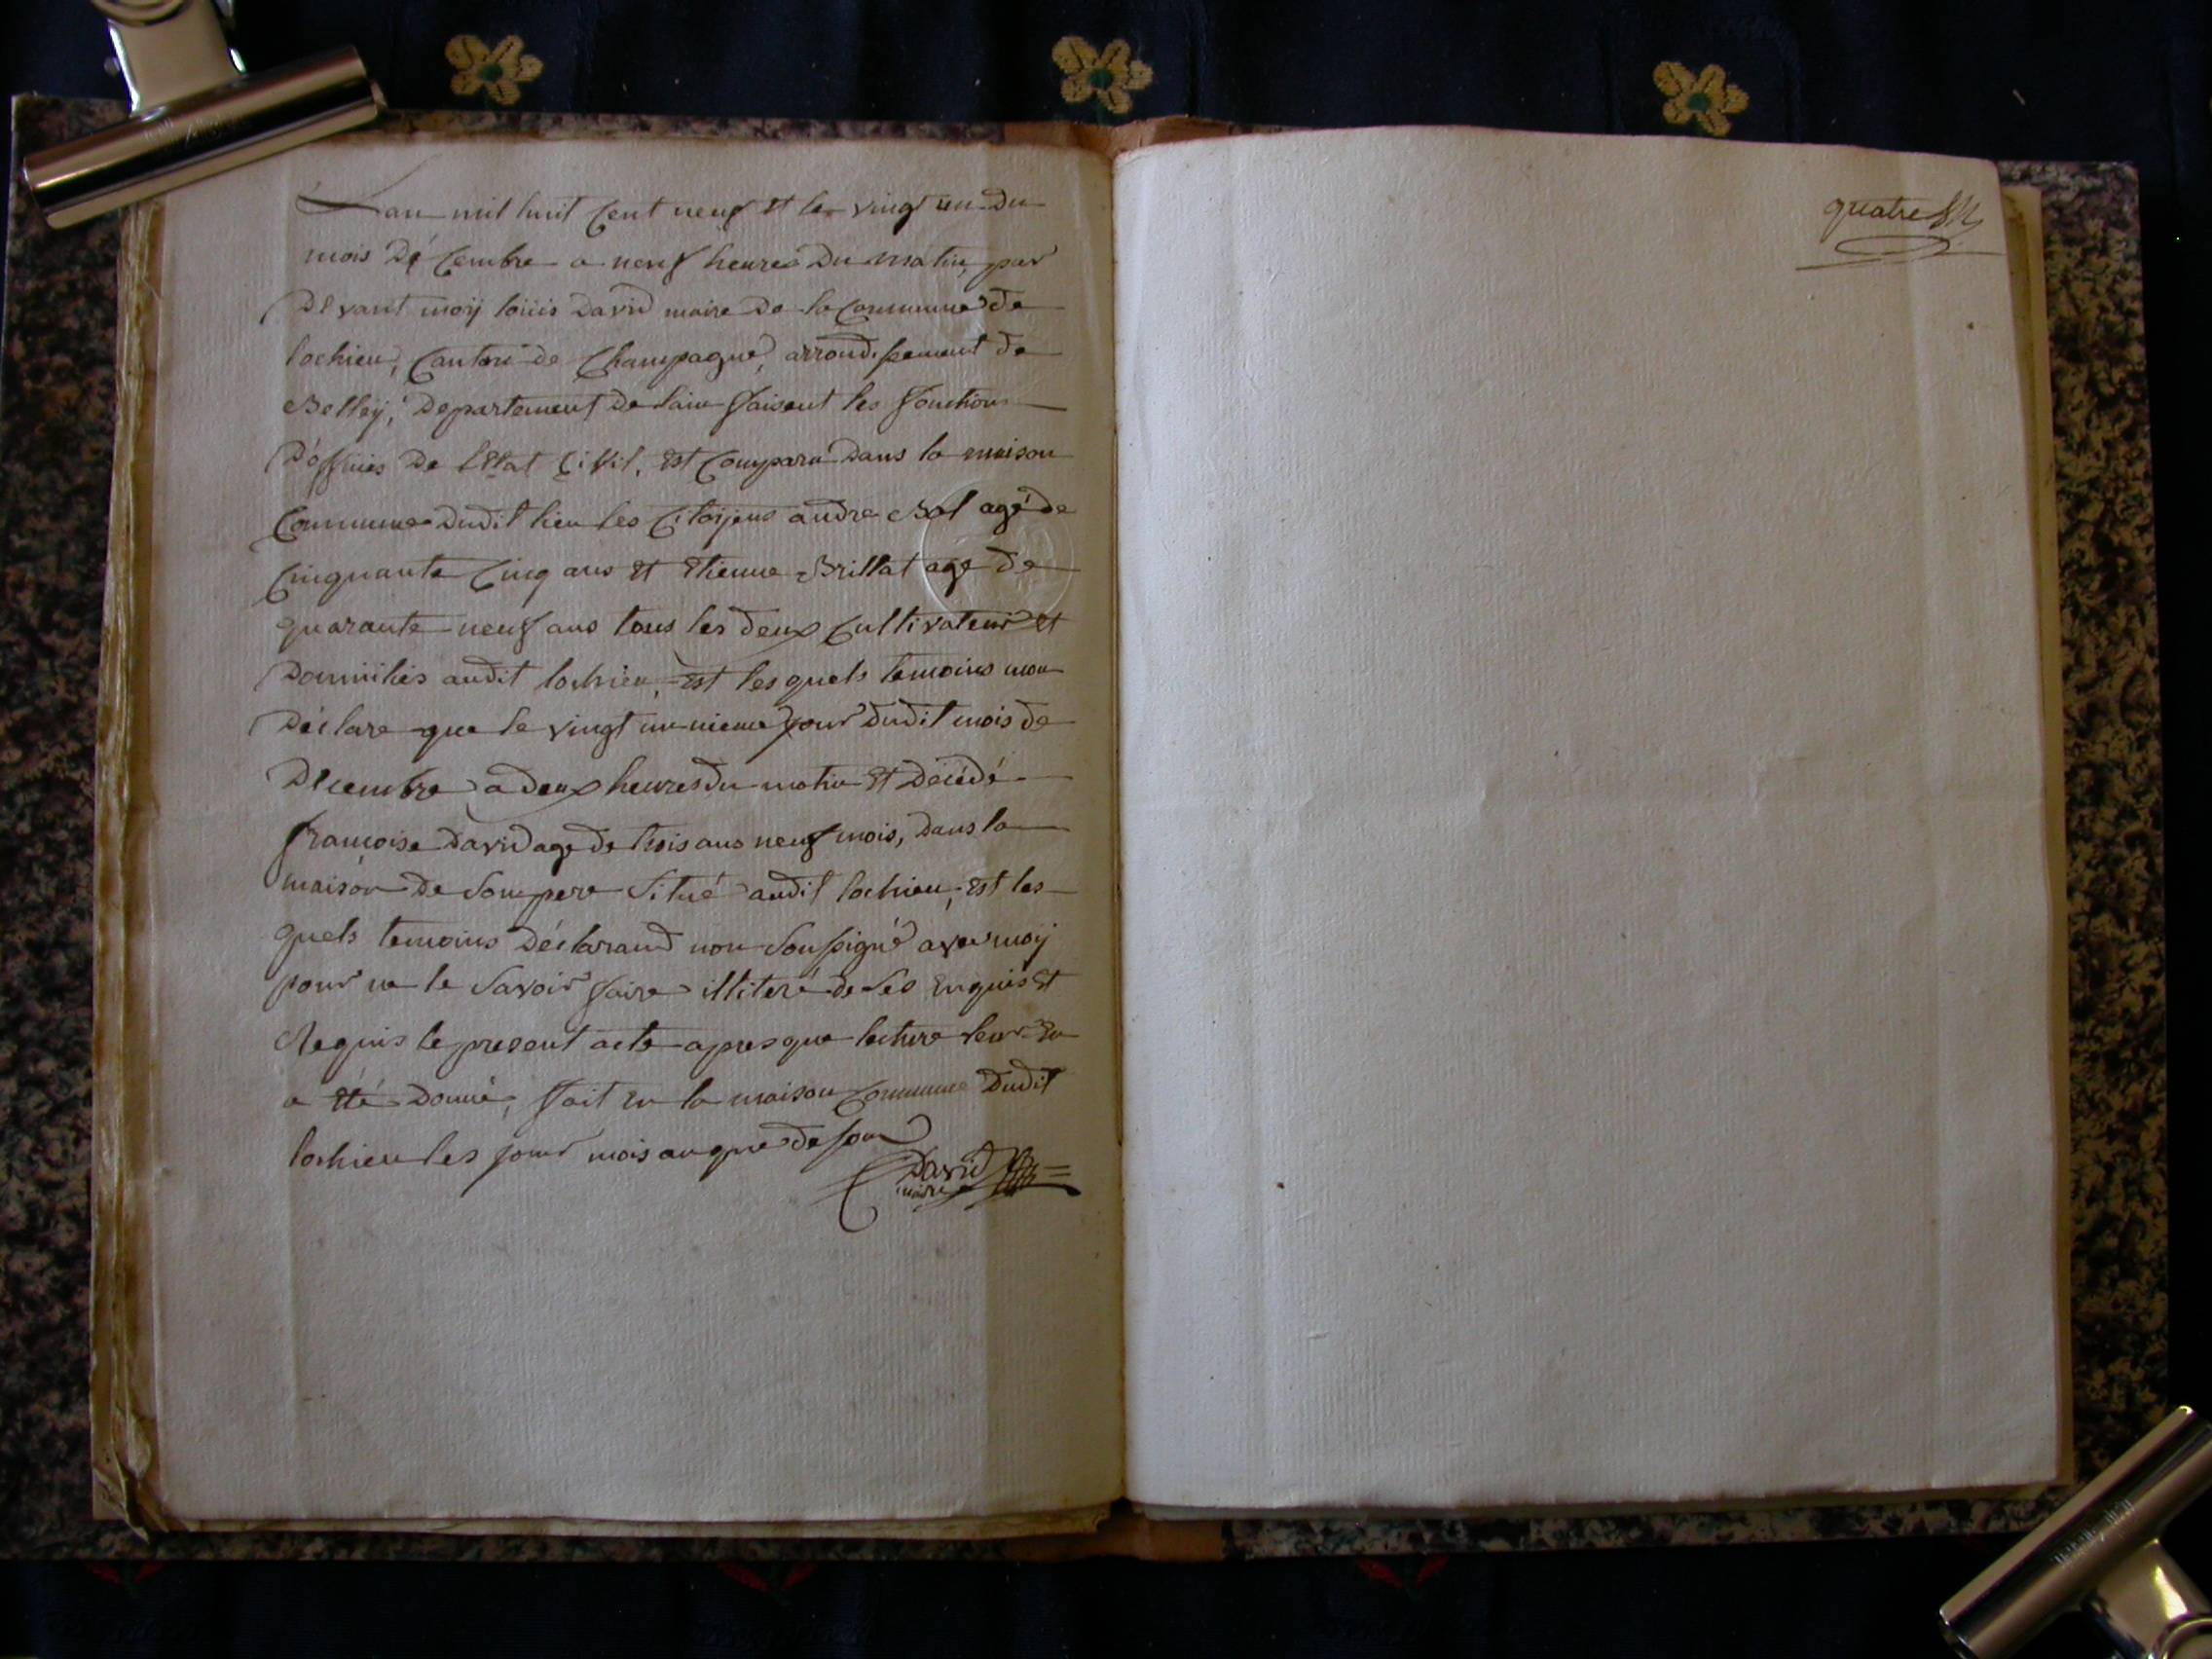 Lan mil huit Cent neuf et le vingt un du
mois Décembre a neuf heures Du matin, par
Devant moÿ loüis David maire De la Commune de
lochieu, Canton de Champagne, arrondissement de
Belleÿ, Departement De lain faisant les fonctions
D'officies De lEtat Civil, est Comparu Dans la maison
Commune Dudit lieu les Citoÿens andre Bal agé de
Cinquante Cinq ans et Etienne Brillat age de
quarante neuf ans tous les deux Cultivateur et
Domiiliés audit lochieu, est lesquels temoins mon
Déclare que le vingt unnieme jour dudit mois de
Decembre a deux heures du matin et Décédé
francoise David age de trois ans neuf mois, Dans la
maison De Son pere Situé audit lochieu, est les
quels temoins Déclarand non Soussigné avec moÿ
pour ne le Savoir faire illiteré de Ses Enquis Et
Requis le present acte apres que lecture leur En
a été Donné, fait En la maison Commune Dudit
lochieu les jour mois an que desson
David
maire
quatre